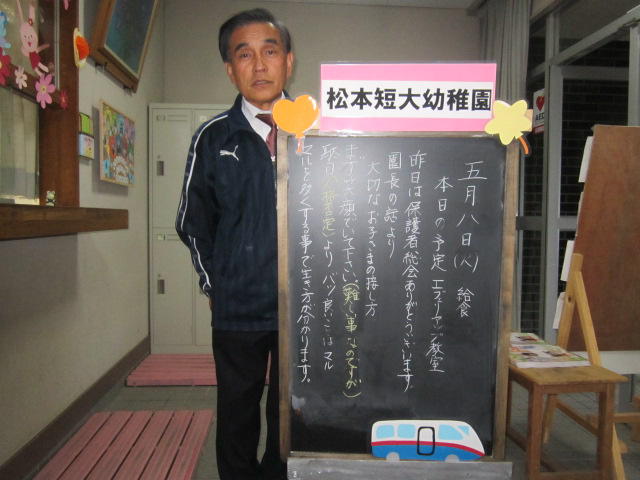 松本短大幼稚園
五月八日(火) 給食
本日の予定 エブリヤング教室
昨日は保護者総会ありがとうございます
園長の話より
大切なお子さまの接し方
まず で で下さい。(難しい事なのですが)
より バツ 良い ことは マル
マルを多くする事で生き方が分かります。
AED